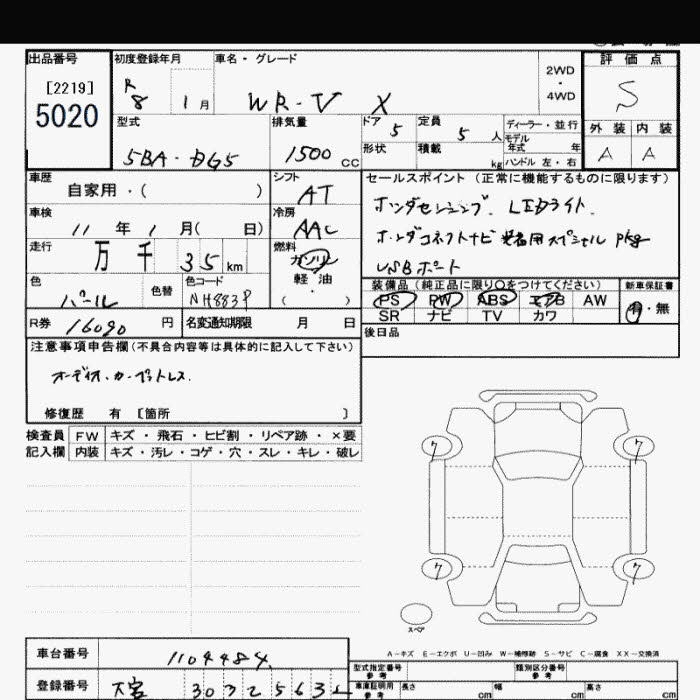 出品番号
[2219]
5020
初度登録年月
R
8 1月
車名・グレード
WR-V X
2WD
・
4WD
評価点
S
外装 内装
A A
型式
5BA-DG5
排気量
1500 cc
ドア
5
定員
5 人
形状
積載
kg
ディーラー・並行
モデル
年式 年
ハンドル 左・右
車歴
自家用・( )
シフト
AT
車検
11年1月( 日)
冷房
AAC
走行
万千35km
燃料
ガソリン
軽油
・
( )
色
パール
色替
色コード
NH883P
R券 16090円
名変通知期限 月 日
セールスポイント(正常に機能するものに限ります)
ホンダセンシング. LEDライト.
ホンダコネクトナビ 装着用スペシャル pkg
USBポート
装備品(純正品に限り○をつけてください)
PS PW ABS エアB AW
SR ナビ TV カワ
新車保証書
有・無
後日品
注意事項申告欄(不具合内容等は具体的に記入して下さい)
オーディオ.カーペットレス.
修復歴 有 [箇所 ]
検査員
記入欄
FW キズ・飛石・ヒビ割・リペア跡・×要
内装 キズ・汚レ・コゲ・穴・スレ・キレ・破レ
7 7
7 7
スペア
A-キズ E-エクボ U-凹み W-補修跡 S-サビ C-腐食 XX-交換済
車台番号 1104484
登録番号 大宮
型式指定番号
参考
類別区分番号
参考
車庫証明用
参考
長さ cm 幅 cm 高さ cm